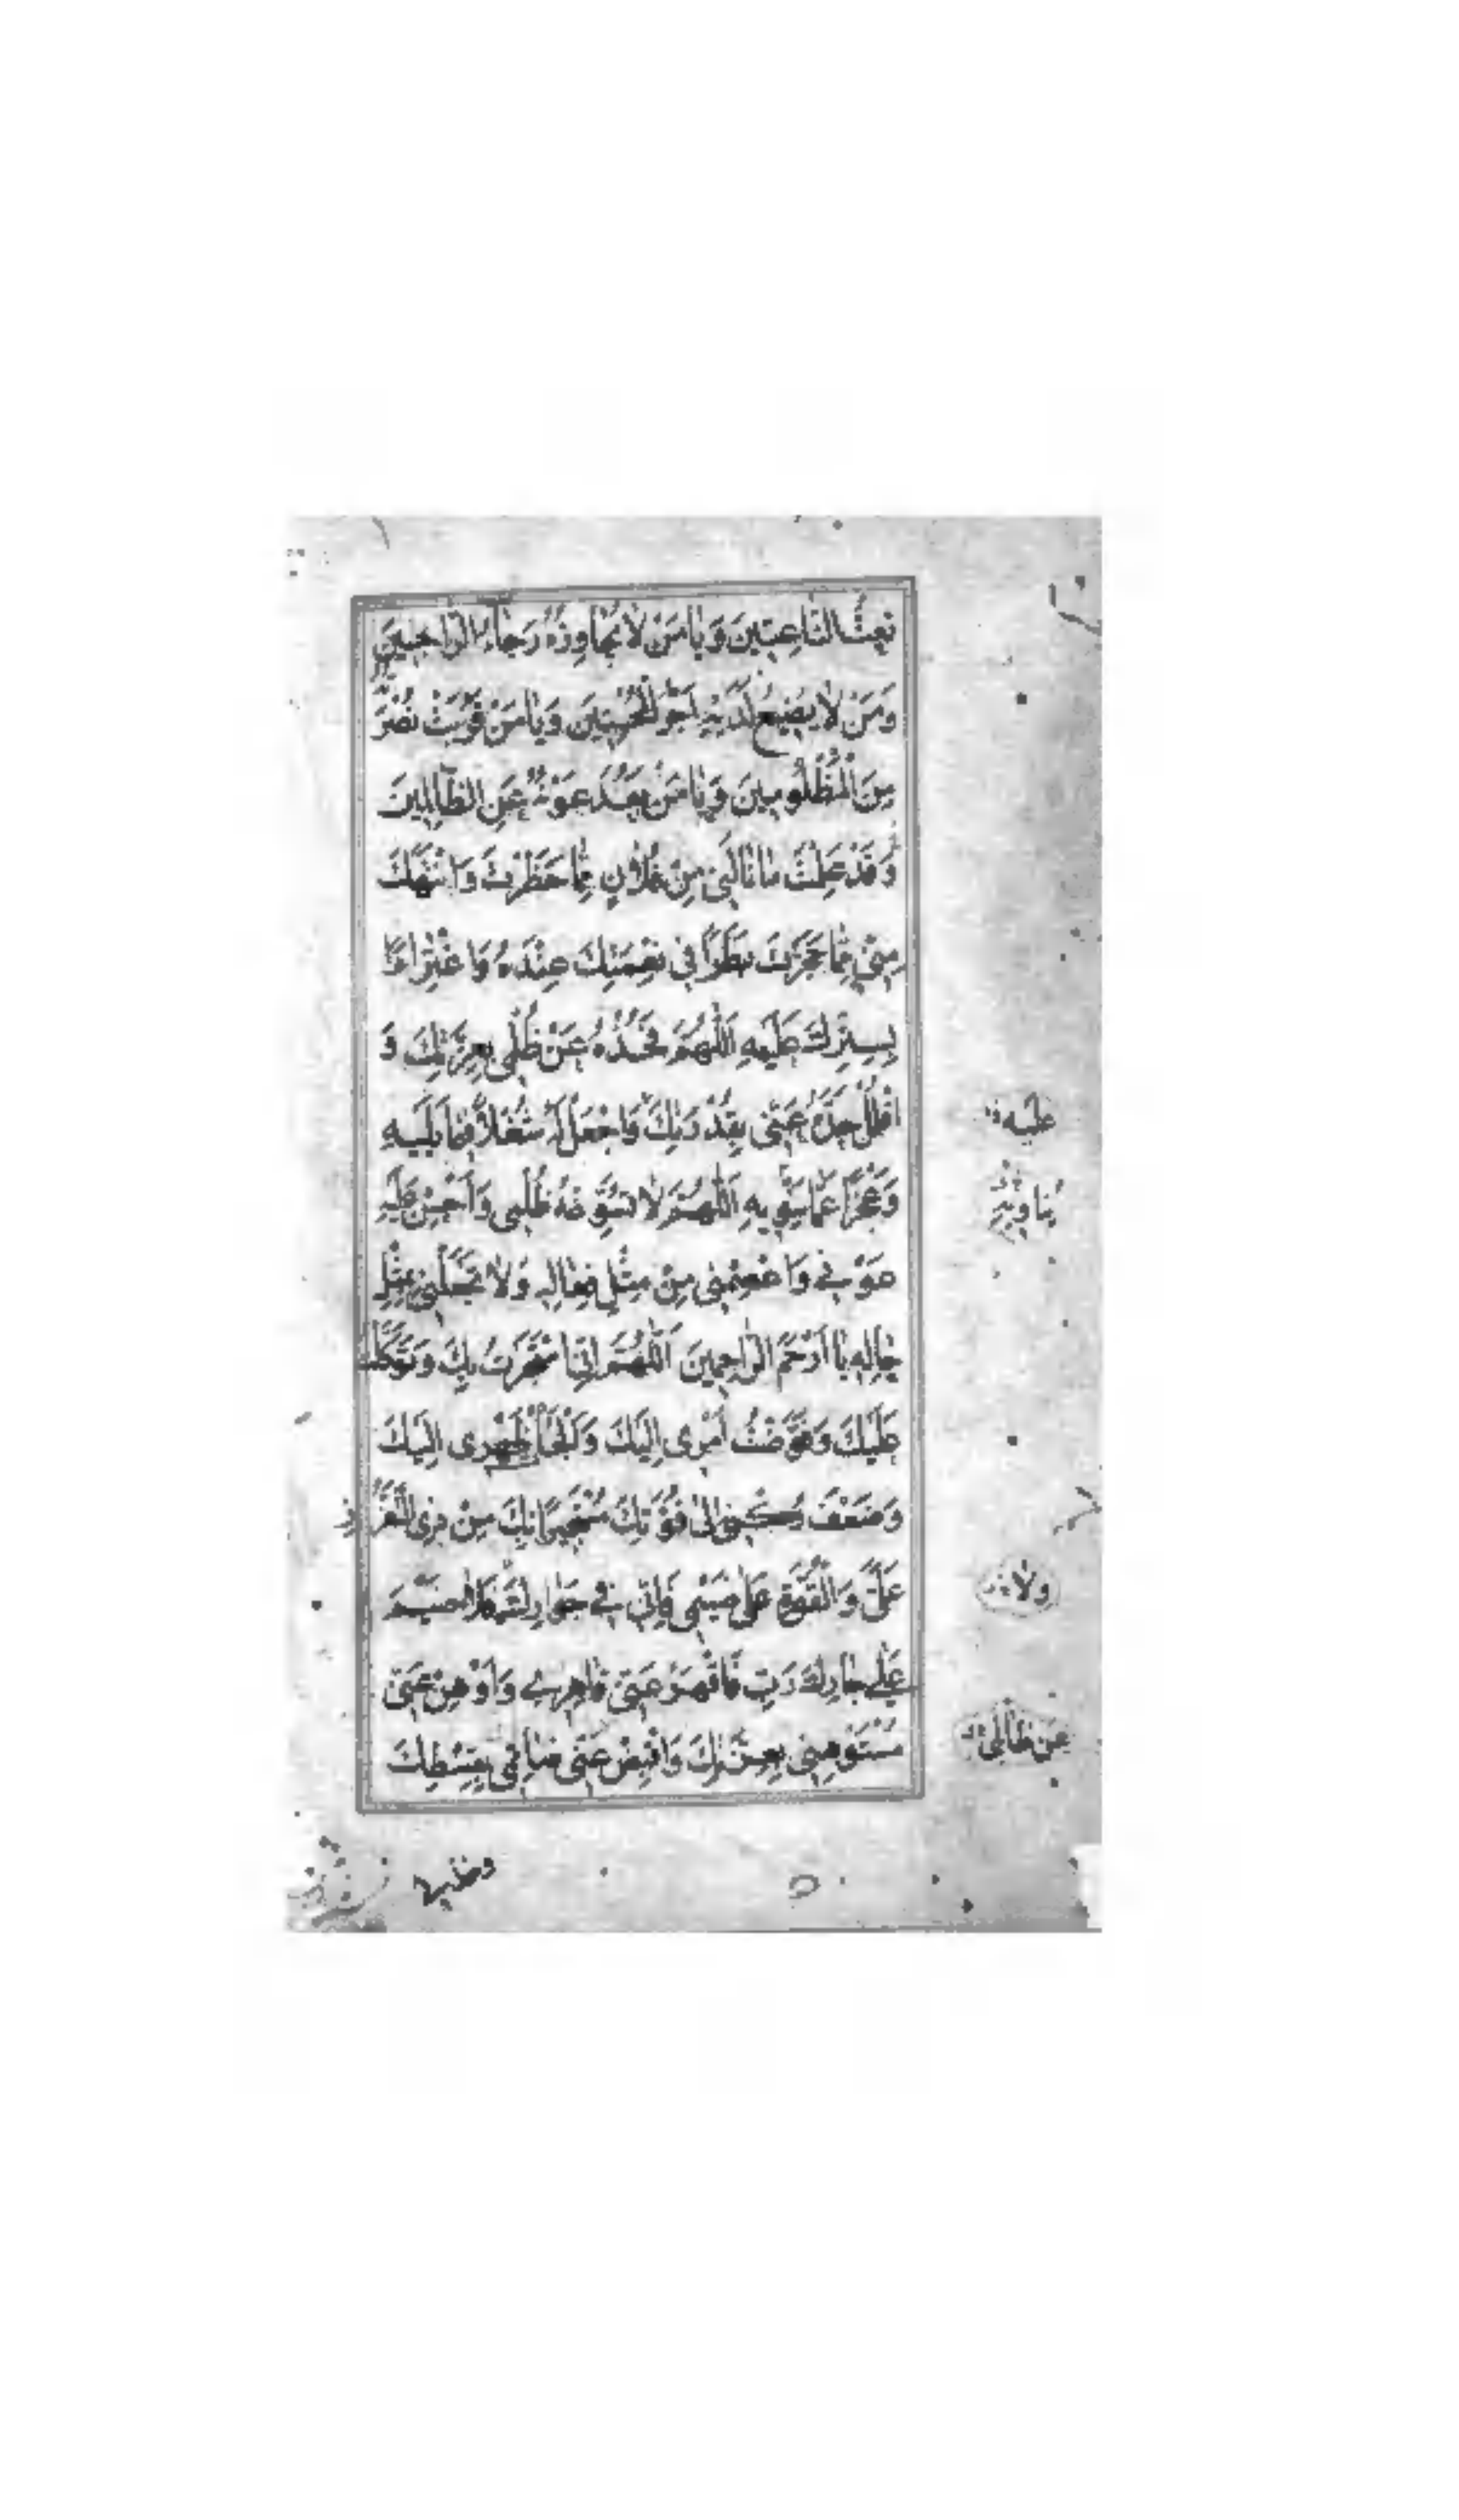 نَعْتُ النَّاعِتِينَ وَيَا مَنْ لَا يُجَاوِزُهُ رَجَاءُ الرَّاجِينَ
وَمَنْ لَا يَضِيعُ لَدَيْهِ أَجْرُ الْمُحْسِنِينَ وَيَا مَنْ قَرُبَتْ نُصْرَتُهُ
مِنَ الْمَظْلُومِينَ وَيَا مَنْ بَعُدَ عَوْنُهُ عَنِ الظَّالِمِينَ
وَقَدْ عَلِمْتَ مَا نَالَنِي مِنْ فُلَانٍ مِمَّا حَظَرْتَ وَانْتَهَكَ
مِنِّي مِمَّا حَجَرْتَ بَطَرًا فِي نِعْمَتِكَ عِنْدَهُ وَاغْتِرَارًا
بِسِتْرِكَ عَلَيْهِ اَللّٰهُمَّ فَخُذْهُ عَنْ ظُلْمِي بِعِزَّتِكَ وَ
افْلُلْ حَدَّهُ عَنِّي بِقُدْرَتِكَ وَاجْعَلْ لَهُ شُغْلًا فِيمَا يَلِيهِ
وَعَجْزًا عَمَّا يَنْوِيهِ اَللّٰهُمَّ لَا تُسَوِّغْهُ ظُلْمِي وَأَحْسِنْ عَلَيْهِ
عَوْنِي وَاعْصِمْنِي مِنْ مِثْلِ فِعَالِهِ وَلَا تَجْعَلْنِي بِمِثْلِ
حَالِهِ يَا أَرْحَمَ الرَّاحِمِينَ اَللّٰهُمَّ إِنِّي اسْتَجَرْتُ بِكَ وَتَوَكَّلْتُ
عَلَيْكَ وَفَوَّضْتُ أَمْرِي إِلَيْكَ وَأَلْجَأْتُ ظَهْرِي إِلَيْكَ
وَضَعْفَ رُكْنِي إِلَى قُوَّتِكَ مُسْتَجِيرًا بِكَ مِنْ ذِي التَّعَزُّزِ
عَلَيَّ وَالْقُوَّةِ عَلَى ضَيْمِي فَإِنِّي فِي جِوَارِكَ فَلَا ضَيْمَ
عَلَى جَارِكَ رَبِّ فَاقْهَرْ عَنِّي قَاهِرِي وَأَوْهِنْ عَنِّي
مُسْتَوْهِنِي بِعِزَّتِكَ وَاقْبِضْ عَنِّي ضَائِمِي بِقِسْطِكَ
عليه
يناويه
ولا
عن ظالمي